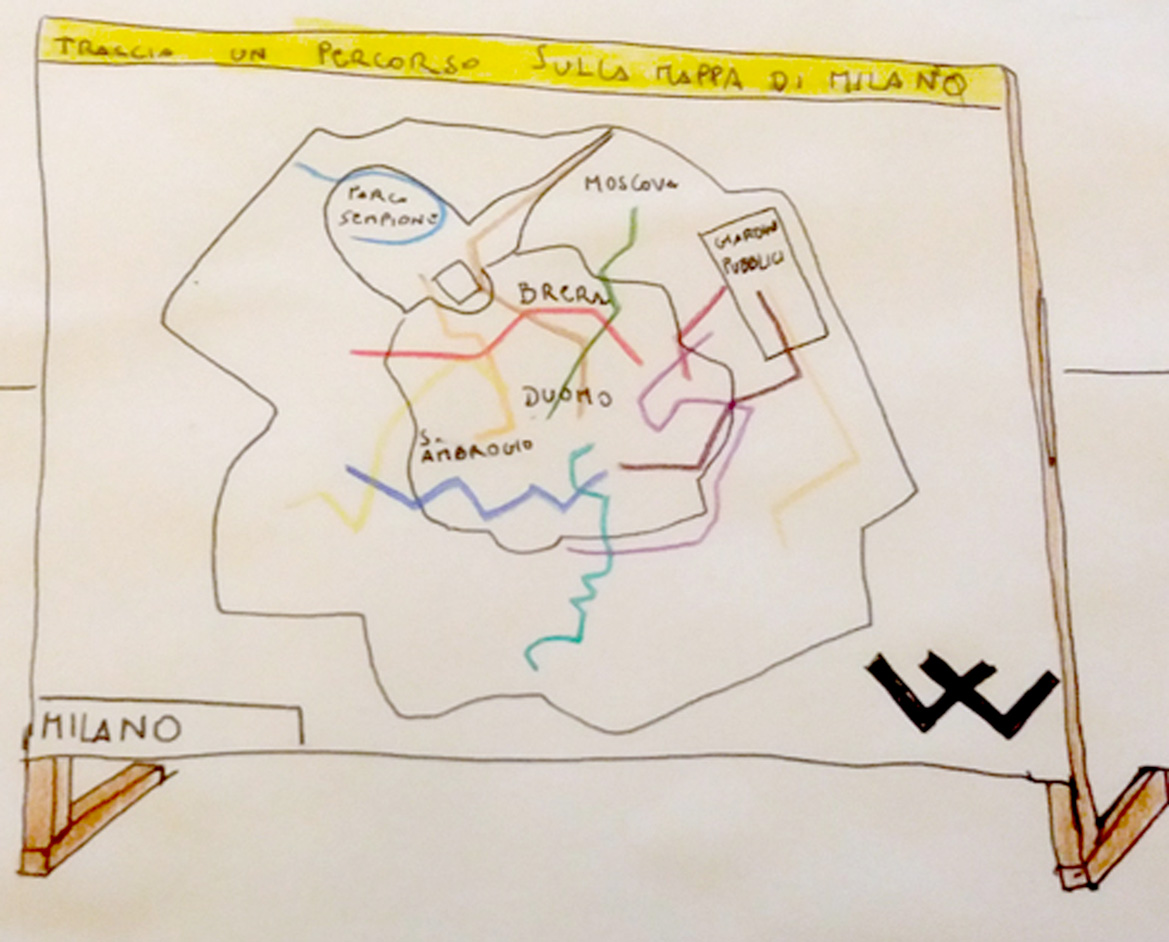 TRACCIA UN PERCORSO SULLA MAPPA DI MILANO
MOSCOVA
PARCO
SEMPIONE
GIARDINI
PUBBLICI
BRERA
DUOMO
S.
AMBROGIO
MILANO